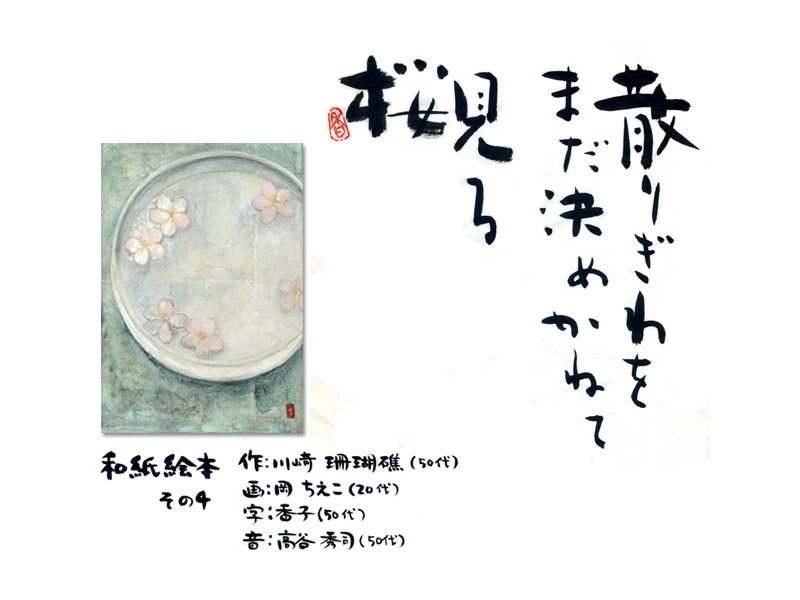 散りぎわを
まだ決めかねて
見る
桜
和紙絵本
その4
作:川崎 珊瑚礁(50代)
画:岡 ちえこ(20代)
字:香子(50代)
音:高谷 秀司(50代)